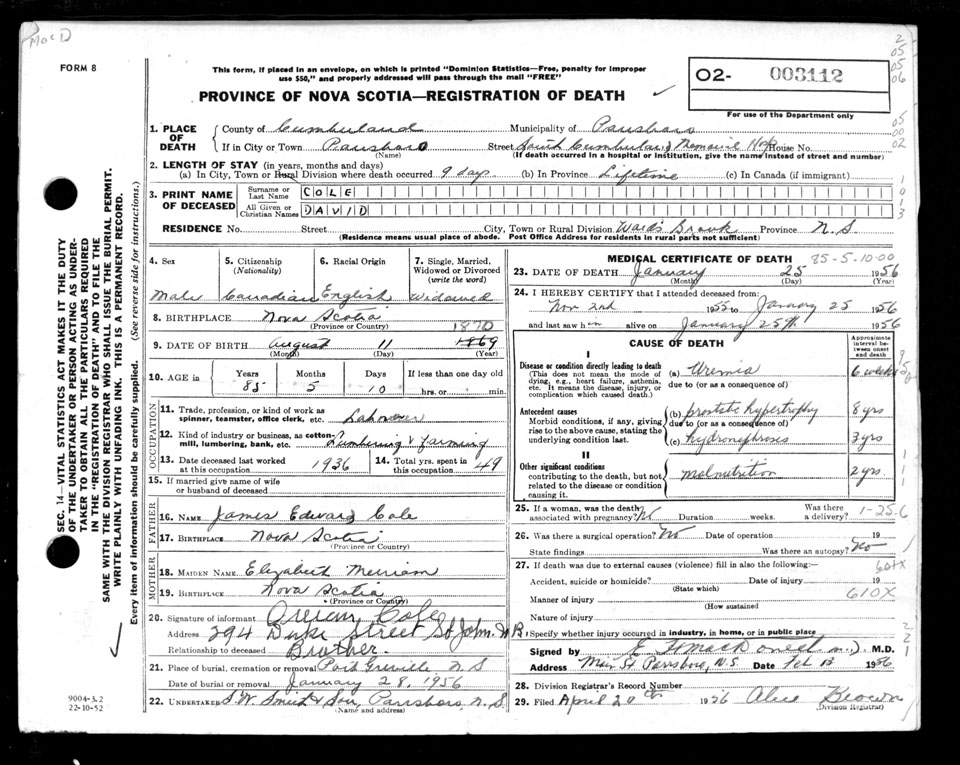 MacD
FORM 8
This form, if placed in an envelope, on which is printed "Dominion Statistics—Free, penalty for improper
use $50," and properly addressed will pass through the mail "FREE"
PROVINCE OF NOVA SCOTIA—REGISTRATION OF DEATH
02- 003112
For use of the Department only
1. PLACE OF DEATH
County of Cumberland Municipality of Parrsboro
If in City or Town Parrsboro Street South Cumberland Memorial Hosp House No.
(Name) (If death occurred in a hospital or institution, give the name instead of street and number)
2. LENGTH OF STAY (in years, months and days)
(a) In City, Town or Rural Division where death occurred 9 days (b) In Province Lifetime (c) In Canada (if immigrant)
3. PRINT NAME OF DECEASED
Surname or Last Name COLE
All Given or Christian Names DAVID
RESIDENCE No. Street City, Town or Rural Division Wards Brook Province N.S.
(Residence means usual place of abode. Post Office Address for residents in rural parts not sufficient)
4. Sex 5. Citizenship (Nationality) 6. Racial Origin 7. Single, Married, Widowed or Divorced (write the word)
Male Canadian English Widowed
8. BIRTHPLACE Nova Scotia
(Province or Country)
1870
9. DATE OF BIRTH August 11 1869
(Month) (Day) (Year)
10. AGE in Years Months Days If less than one day old
85 5 10 hrs. or min.
OCCUPATION
11. Trade, profession, or kind of work as
spinner, teamster, office clerk, etc. Labourer
12. Kind of industry or business, as cotton-
mill, lumbering, bank, etc. Lumbering & farming
13. Date deceased last worked at this occupation 1936 14. Total yrs. spent in this occupation 49
15. If married give name of wife
or husband of deceased
FATHER
16. NAME James Edward Cole
17. BIRTHPLACE Nova Scotia
(Province or Country)
MOTHER
18. MAIDEN NAME Elizabeth Merriam
19. BIRTHPLACE Nova Scotia
(Province or Country)
20. Signature of informant Cole
Address 294 Duke Street St John, N B.
Relationship to deceased Brother
21. Place of burial, cremation or removal Port Greville N S
Date of burial or removal January 28, 1956
22. UNDERTAKER S. W. Smith & Son, Parrsboro, N.S.
(Name and address)
MEDICAL CERTIFICATE OF DEATH 85-5-10-00
23. DATE OF DEATH January 25 1956
(Month) (Day) (Year)
24. I HEREBY CERTIFY that I attended deceased from:
Nov 2nd 1955 to January 25 1956
and last saw him alive on January 25th 1956
CAUSE OF DEATH
Approximate interval between onset and death
I
Disease or condition directly leading to death (a) Uremia 6 weeks
(This does not mean the mode of due to (or as a consequence of)
dying, e.g., heart failure, asthenia,
etc. It means the disease, injury, or
complication which caused death.)
Antecedent causes (b) prostatic hypertrophy 8 yrs
Morbid conditions, if any, giving due to (or as a consequence of)
rise to the above cause, stating the (c) hydronephrosis 3 yrs
underlying condition last.
II
Other significant conditions malnutrition 2 yrs.
contributing to the death, but not
related to the disease or condition
causing it.
25. If a woman, was the death associated with pregnancy? No Duration weeks. Was there a delivery? 1-25-6
26. Was there a surgical operation? No Date of operation 19
State findings Was there an autopsy? No
27. If death was due to external causes (violence) fill in also the following:
601X
Accident, suicide or homicide? Date of injury 19
(State which) 610X
Manner of injury
(How sustained
Nature of injury
Specify whether injury occurred in industry, in home, or in public place
Signed by MacDonell M.D.
Address Main St Parrsboro, N.S. Date Feb 13 1956
28. Division Registrar's Record Number
29. Filed April 20th 1956 Alice Brown
(Division Registrar)
SEC. 14—VITAL STATISTICS ACT MAKES IT THE DUTY
OF THE UNDERTAKER OR PERSON ACTING AS UNDER-
TAKER TO OBTAIN ALL THE PARTICULARS REQUIRED
IN THE "REGISTRATION OF DEATH" AND TO FILE THE
SAME WITH THE DIVISION REGISTRAR WHO SHALL ISSUE THE BURIAL PERMIT.
WRITE PLAINLY WITH UNFADING INK. THIS IS A PERMANENT RECORD.
Every item of information should be carefully supplied. (See reverse side for instructions.)
9004-3.2
22-10-52